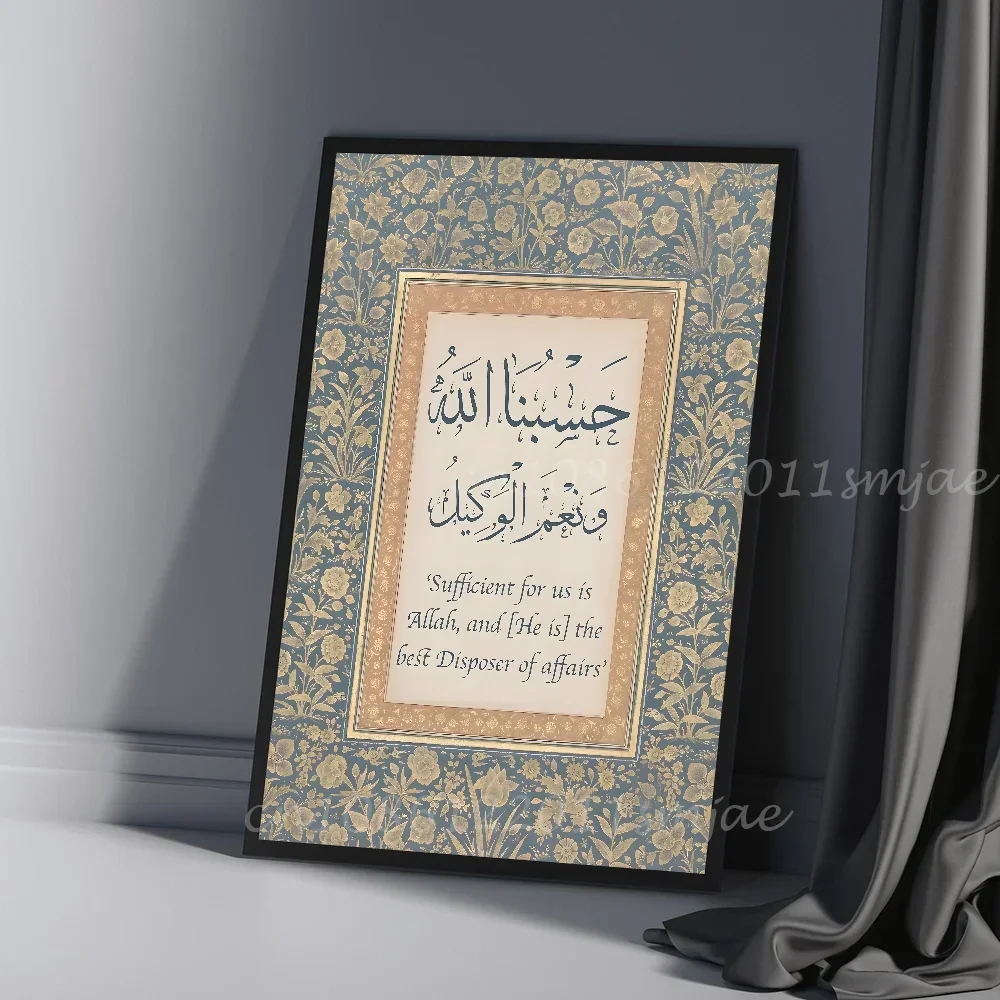 حَسْبُنَا اللَّهُ
وَنِعْمَ الْوَكِيلُ
‘Sufficient for us is
Allah, and [He is] the
best Disposer of affairs’
011smjae